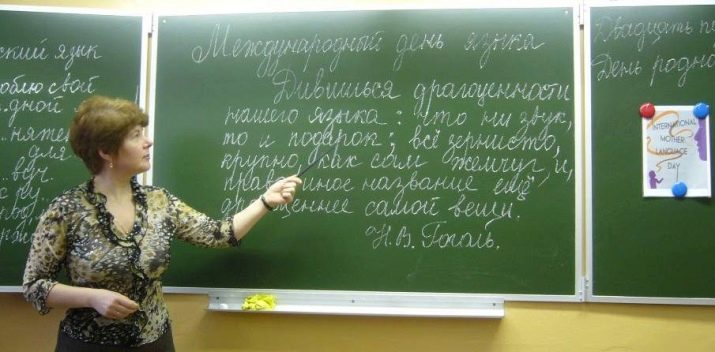 ский язык
юблю свой
дной
для
Международный день языка
Дивишься драгоценности
нашего языка: что ни звук,
то и подарок; всё зернисто,
крупно, как сам жемчуг, и,
право, иное название ещё
драгоценнее самой вещи.
Н.В. Гоголь.
Двадцать пе
День родно
INTERNATIONAL
MOTHER
LANGUAGE
DAY